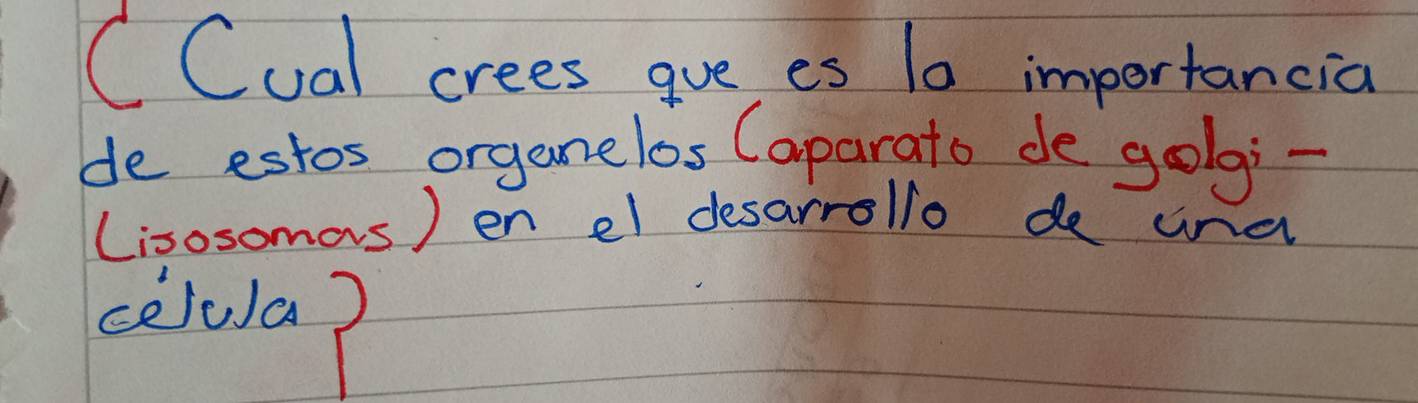 ¿Cual crees que es la importancia
de estos organelos (aparato de golgi -
Lisosomas) en el desarrollo de una
célula?